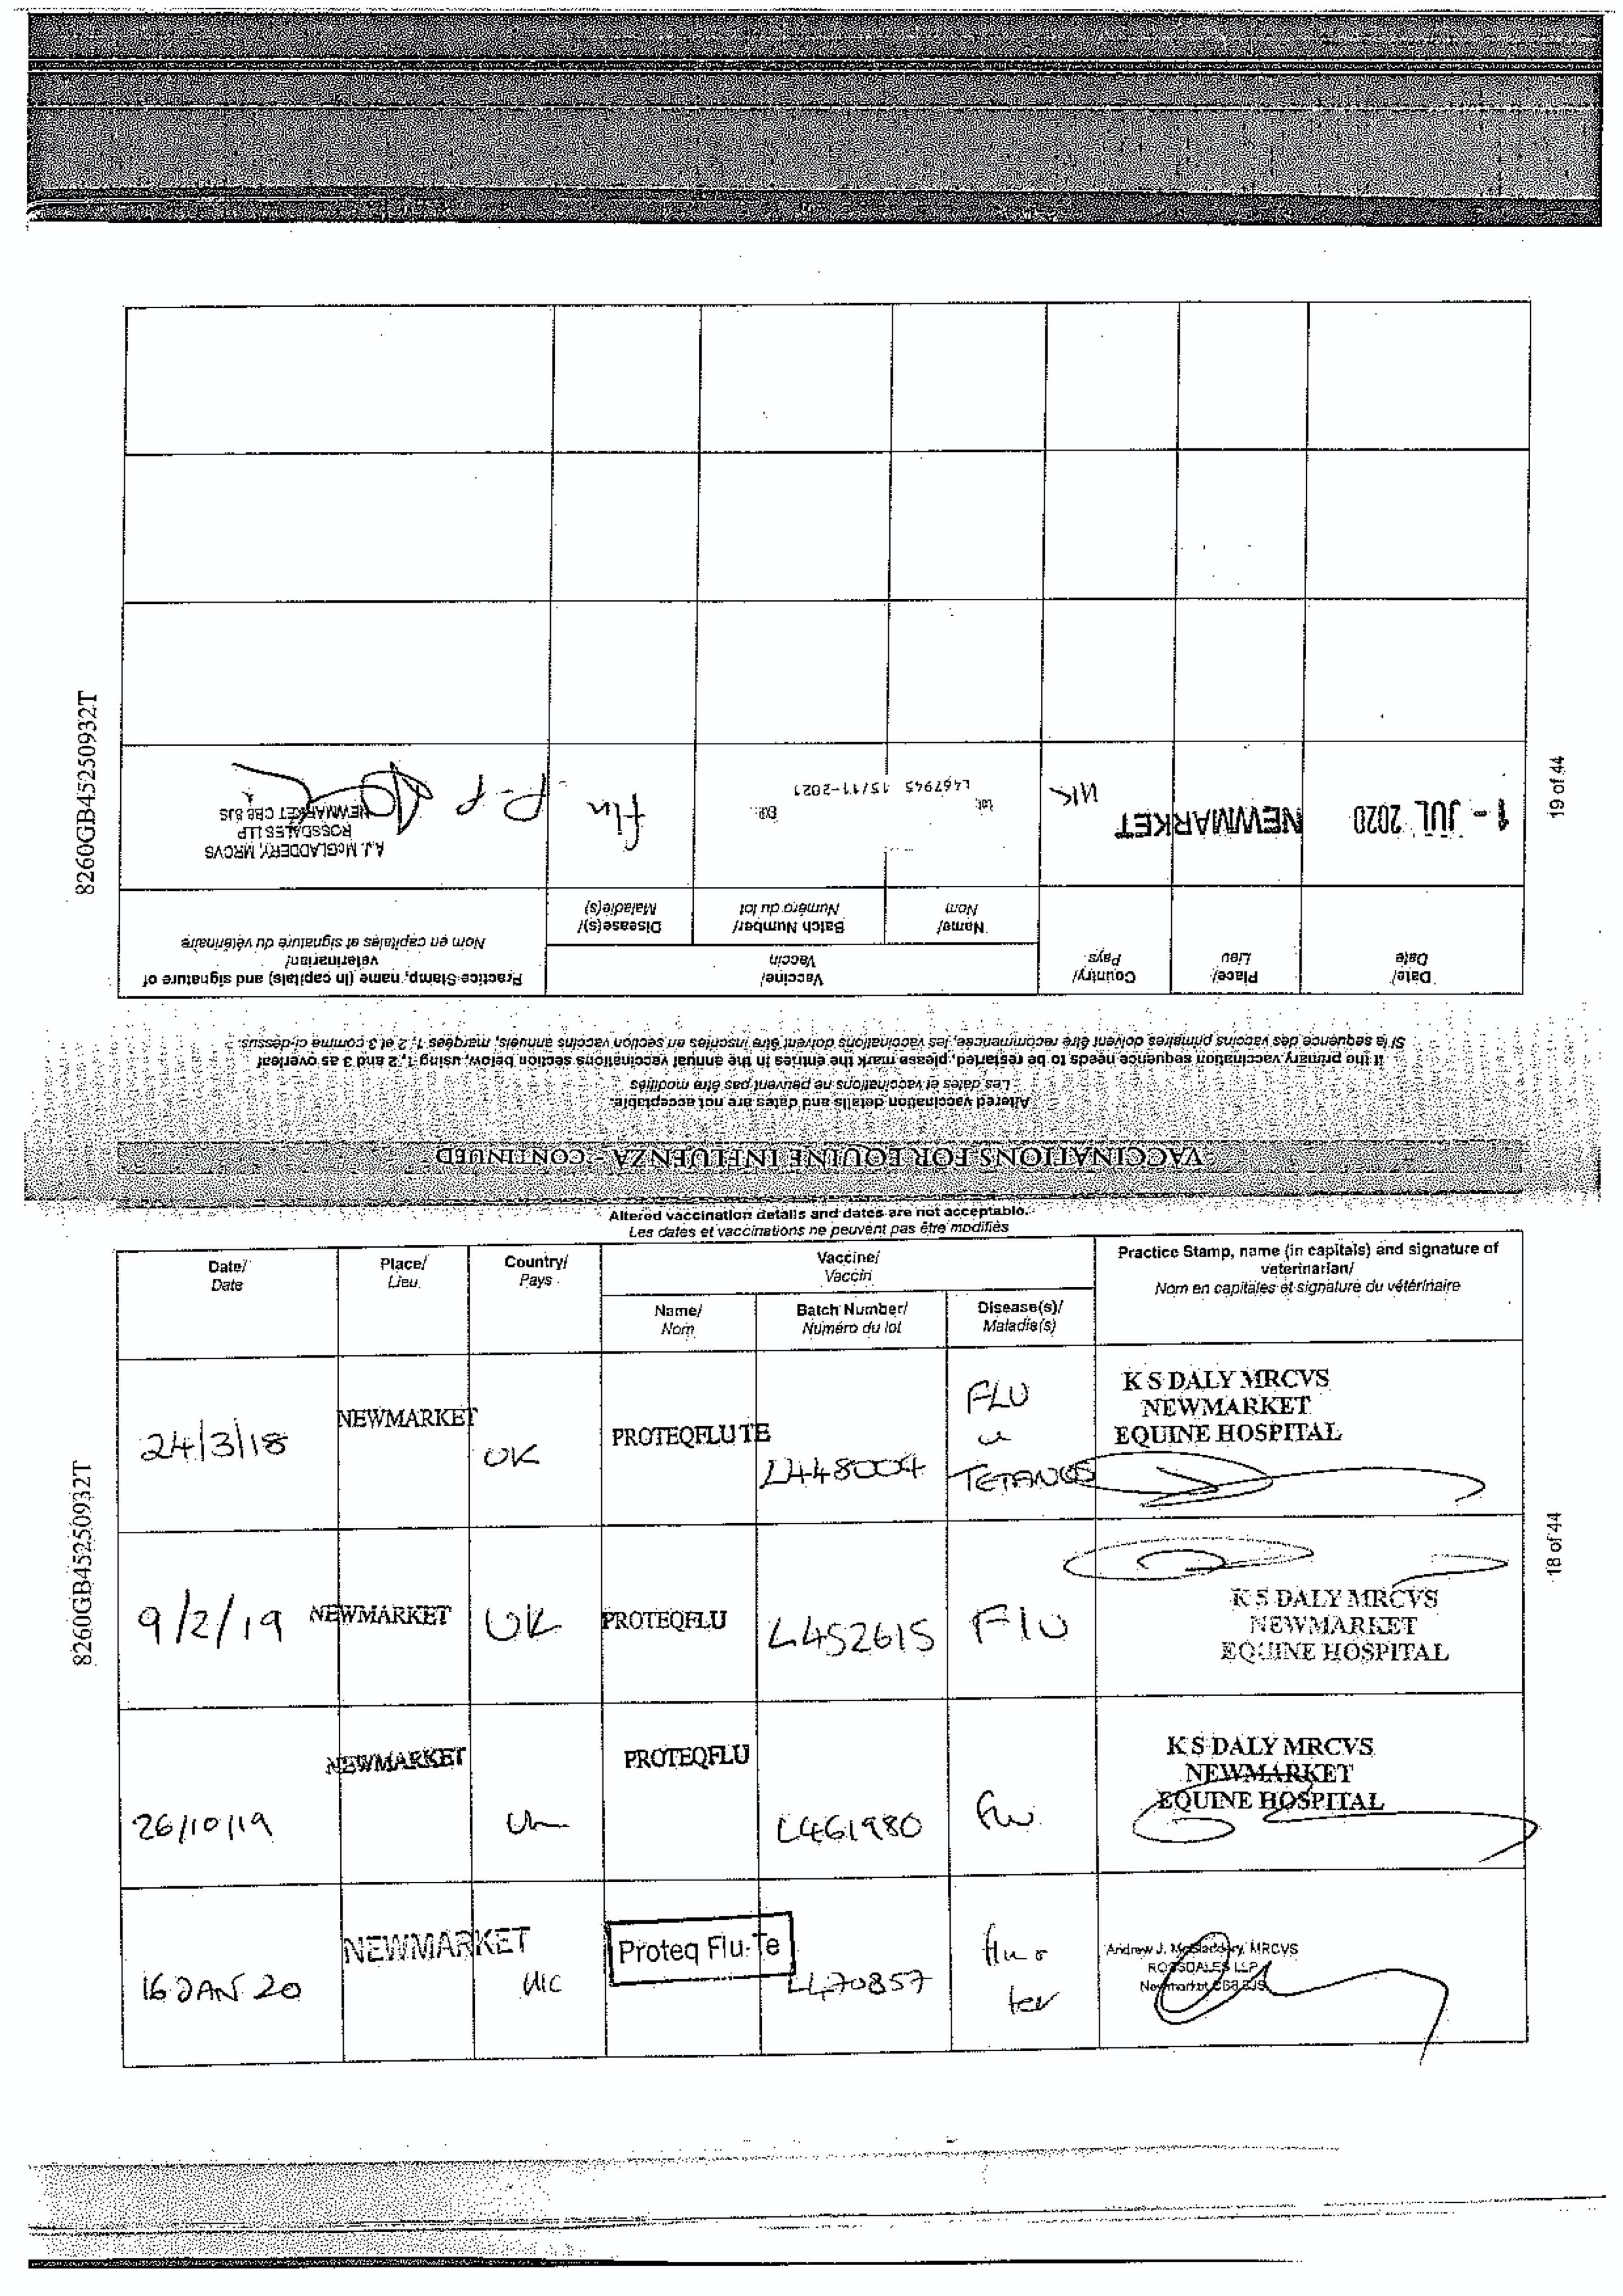 8260GB45250932T
18 of 44
Altered vaccination details and dates are not acceptable.
Les dates et vaccinations ne peuvent pas être modifiés
Date/ Date
Place/ Lieu
Country/ Pays
Vaccine/ Vaccin
Name/ Nom
Batch Number/ Numéro du lot
Disease(s)/ Maladie(s)
Practice Stamp, name (in capitals) and signature of veterinarian/
Nom en capitales et signature du vétérinaire
24/3/18 NEWMARKET UK PROTEQFLU TE L448004 FLU TETANUS
K S DALY MRCVS
NEWMARKET
EQUINE HOSPITAL
9/2/19 NEWMARKET UK PROTEQFLU L452615 Flu
K S DALY MRCVS
NEWMARKET
EQUINE HOSPITAL
26/10/19 NEWMARKET UK PROTEQFLU L461980 Flu
K S DALY MRCVS
NEWMARKET
EQUINE HOSPITAL
16 JAN 20 NEWMARKET UK Proteq Flu-Te L470857 flu
Andrew J. McGladdery, MRCVS
ROSSDALES LLP
Newmarket CB8 8JS
VACCINATIONS FOR EQUINE INFLUENZA - CONTINUED
Altered vaccination details and dates are not acceptable.
Les dates et vaccinations ne peuvent pas être modifiés
If the primary vaccination sequence needs to be restarted, please mark the entries in the annual vaccinations section below, using 1, 2 and 3 as overleaf
Si la sequence des vaccins primaires doivent être recommencée, les vaccinations doivent être inscrites en section vaccins annuels, margées 1, 2 et 3 comme ci-dessus.
Date/ Date
Place/ Lieu
Country/ Pays
Vaccine/ Vaccin
Name/ Nom
Batch Number/ Numéro du lot
Disease(s)/ Maladie(s)
Practice Stamp, name (in capitals) and signature of
veterinarian/
Nom en capitales et signature du vétérinaire
1 - JUL 2020 NEWMARKET UK
Lot: Exp.:
L467945 15/11-2021
flu
P-P
A.J. McGLADDERY, MRCVS
ROSSDALES LLP
NEWMARKET CB8 8JS
8260GB45250932T
19 of 44